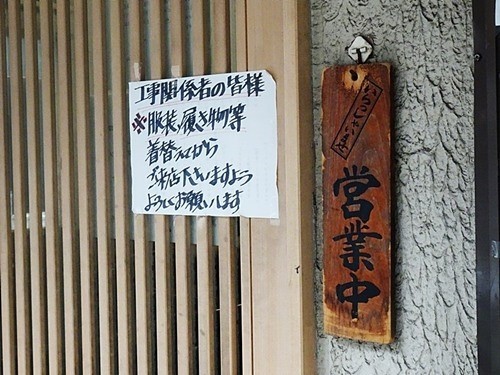 工事関係者の皆様
※服装、履き物等
着替えてから
ご来店下さいますよう
よろしくお願いします
いらっしゃいませ
営業中